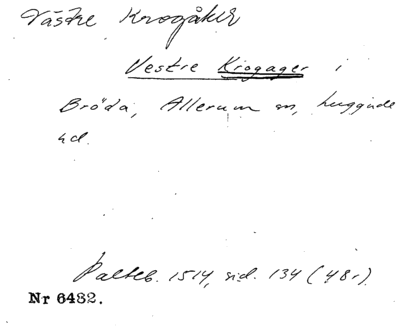 Västre Krogåker
Vestre Krogager i
Bröda, Allerum sn, Luggude
hd.
Palteb. 1514, sid. 134 (48r).
Nr 6482.